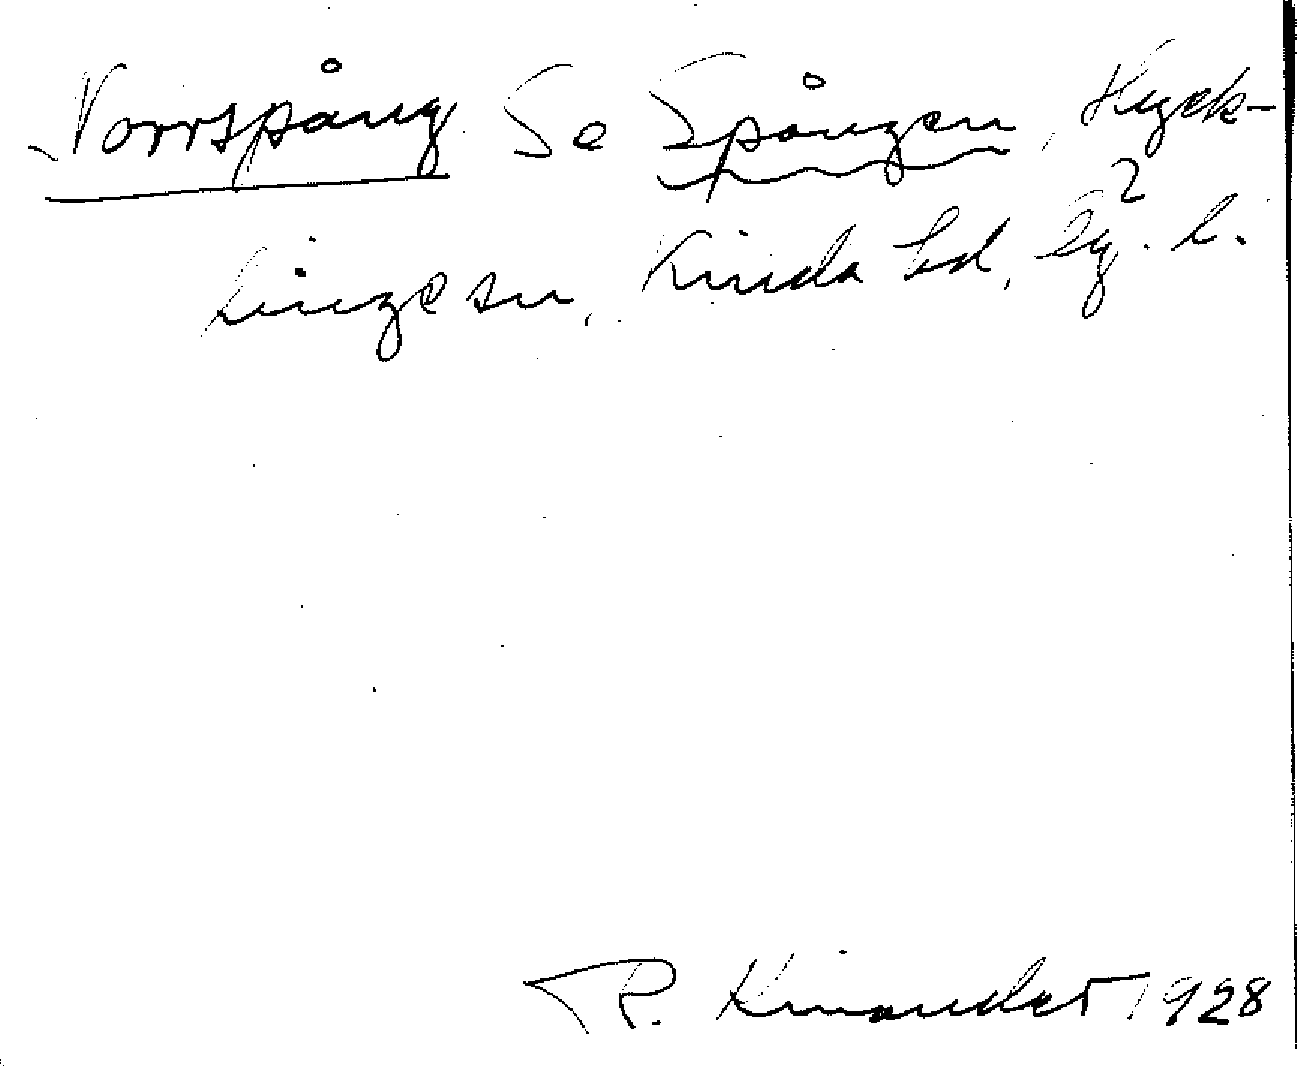 Norrspång Se Spången, Hyck-
lingesn, Kinda hd, Ög. l.
2
R. Kinander 1928